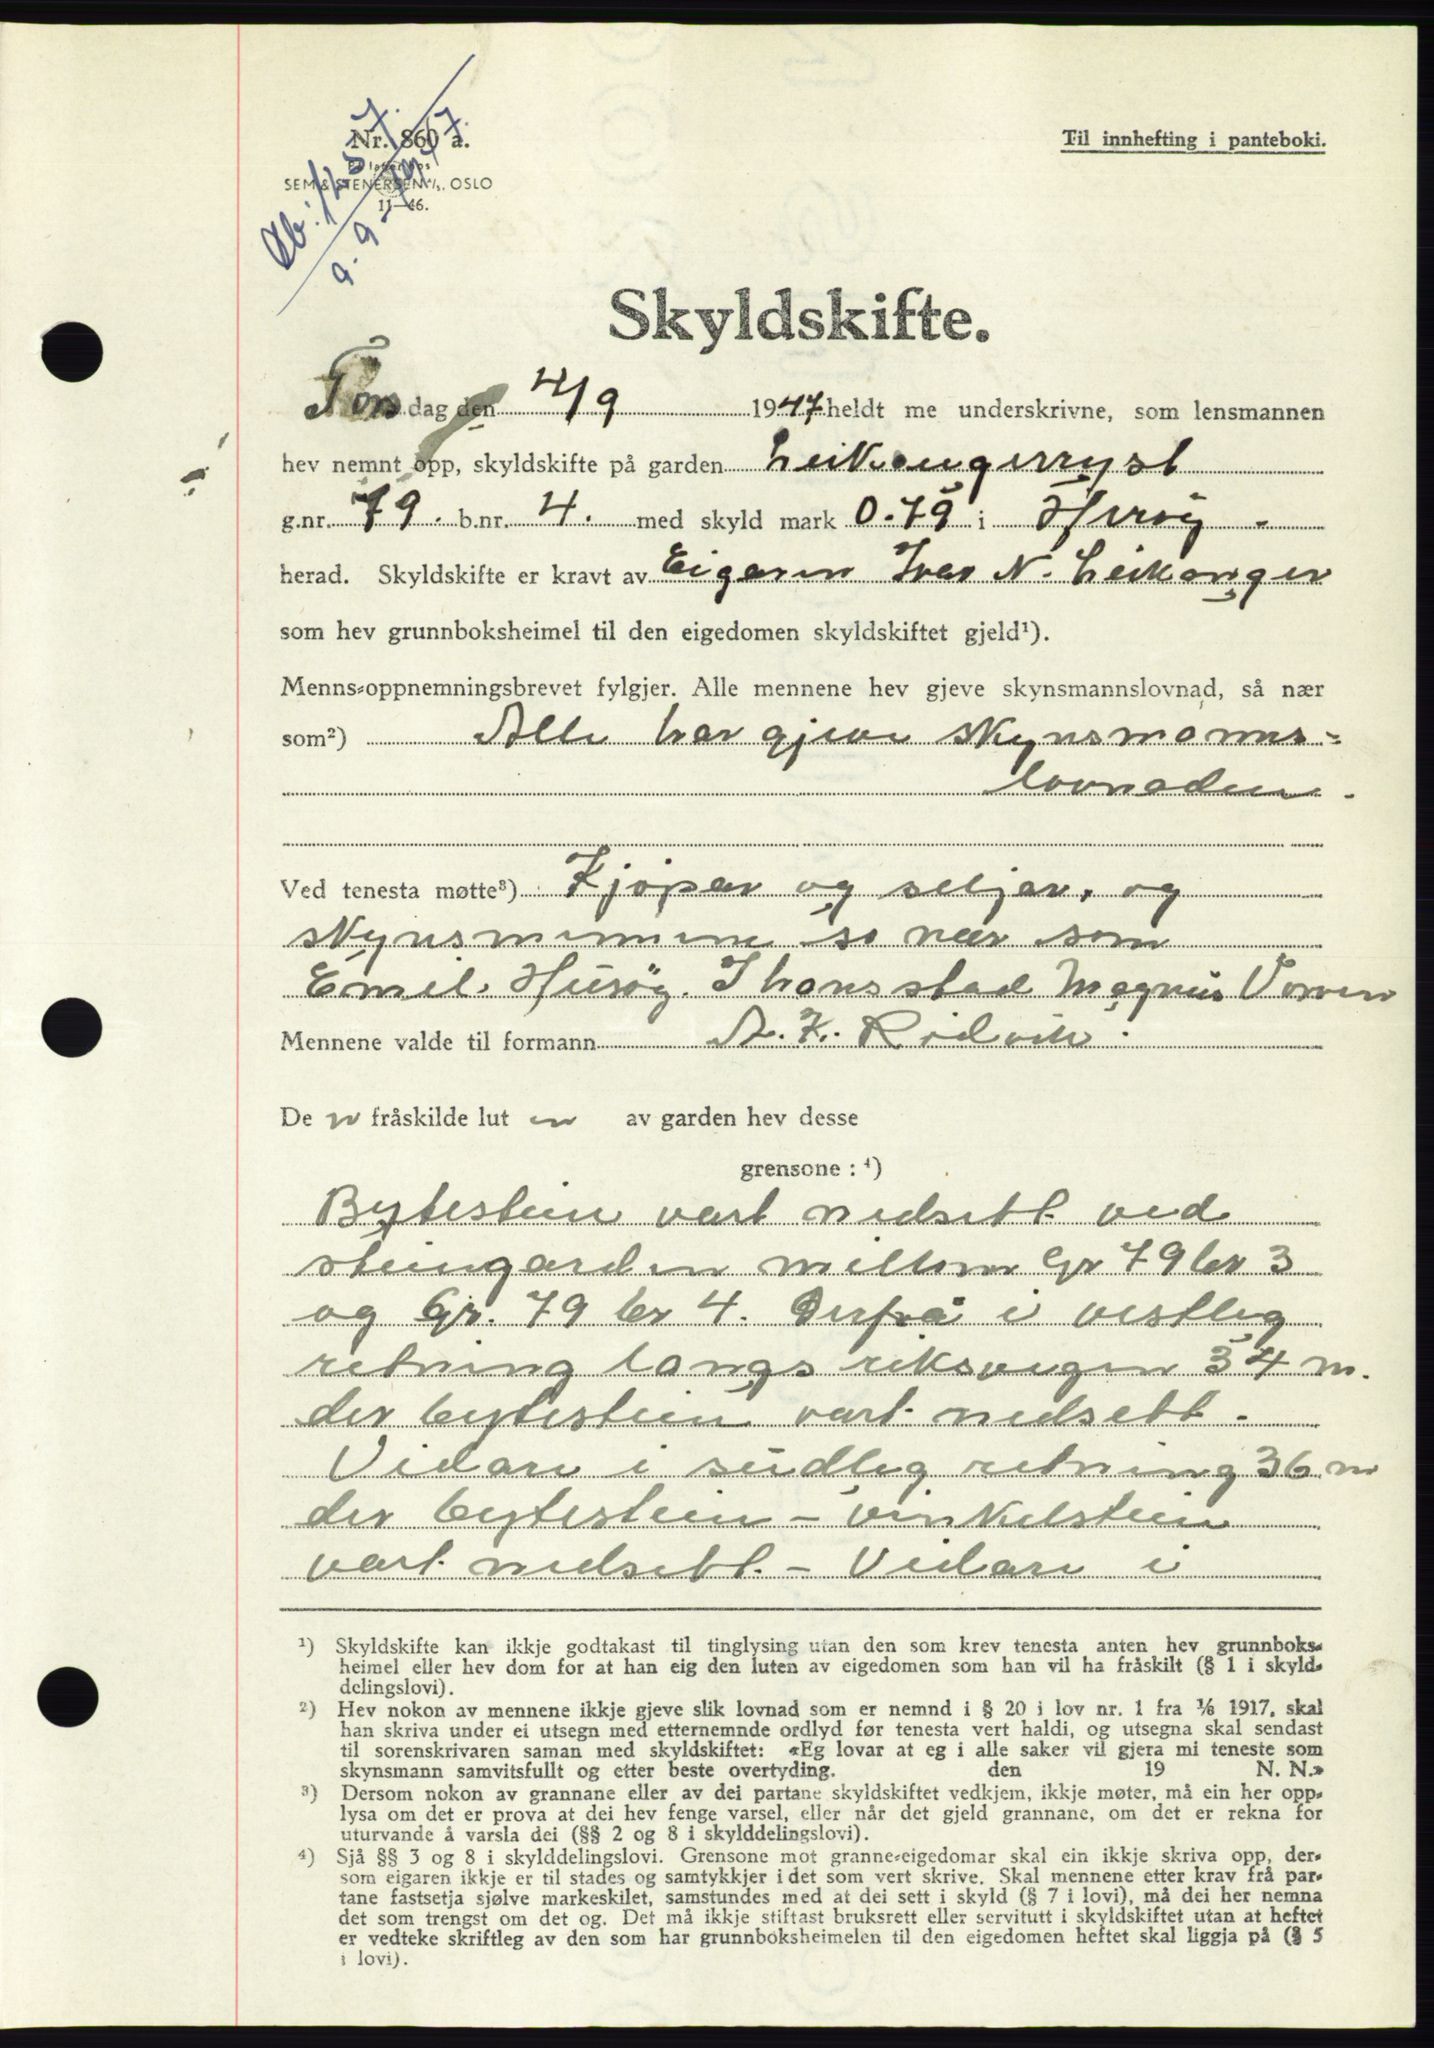 Db: 1257.
9.9-1947.
Nr. 860 a.
SEM & STENERSEN A/S, OSLO
11—46.
Til innhefting i panteboki.
Skyldskifte.
Tors dag den 4/9 1947 heldt me underskrivne, som lensmannen
hev nemnt opp, skyldskifte på garden Leikangerryst
g.nr. 79. b.nr. 4. med skyld mark 0.79 i Herøy.
herad. Skyldskifte er kravt av Eigaren Ivar N. Leikanger
som hev grunnboksheimel til den eigedomen skyldskiftet gjeld¹).
Menns-oppnemningsbrevet fylgjer. Alle mennene hev gjeve skynsmannslovnad, så nær
som²) Alle har gjeve skynsmanns-
lovnaden.
Ved tenesta møtte³) Kjøpar og seljar, og
skynsmennene so nær som
Emil Husøy. Thonsstad Magnus
Mennene valde til formann A. K. Rødvik.
De n fråskilde lut en av garden hev desse
grensone : ⁴)
Bytestein vart nedsett ved
steingarden millom Gr 79 br 3
og Gr. 79 br 4. Derfrå i vestleg
retning langs riksvegen 34 m.
der bytestein vart nedsett.
Vidare i sudleg retning 36 m
der bytestein – vinkelstein
vart nedsett. – Vidare i
¹) Skyldskifte kan ikkje godtakast til tinglysing utan den som krev tenesta anten hev grunnboks-
heimel eller hev dom for at han eig den luten av eigedomen som han vil ha fråskilt (§ 1 i skyld-
delingslovi).
²) Hev nokon av mennene ikkje gjeve slik lovnad som er nemnd i § 20 i lov nr. 1 fra 1/6 1917, skal
han skriva under ei utsegn med etternemnde ordlyd før tenesta vert haldi, og utsegna skal sendast
til sorenskrivaren saman med skyldskiftet: «Eg lovar at eg i alle saker vil gjera mi teneste som
skynsmann samvitsfullt og etter beste overtyding. den 19 N. N.»
³) Dersom nokon av grannane eller av dei partane skyldskiftet vedkjem, ikkje møter, må ein her opp-
lysa om det er prova at dei hev fenge varsel, eller når det gjeld grannane, om det er rekna for
uturvande å varsla dei (§§ 2 og 8 i skylddelingslovi).
⁴) Sjå §§ 3 og 8 i skylddelingslovi. Grensone mot granne-eigedomar skal ein ikkje skriva opp, der-
som eigaren ikkje er til stades og samtykkjer i det som vert skrive. Skal mennene etter krav frå par-
tane fastsetja sjølve markeskilet, samstundes med at dei sett i skyld (§ 7 i lovi), må dei her nemna
det som trengst om det og. Det må ikkje stiftast bruksrett eller servitutt i skyldskiftet utan at heftet
er vedteke skriftleg av den som har grunnboksheimelen til den eigedomen heftet skal liggja på (§ 5
i lovi).